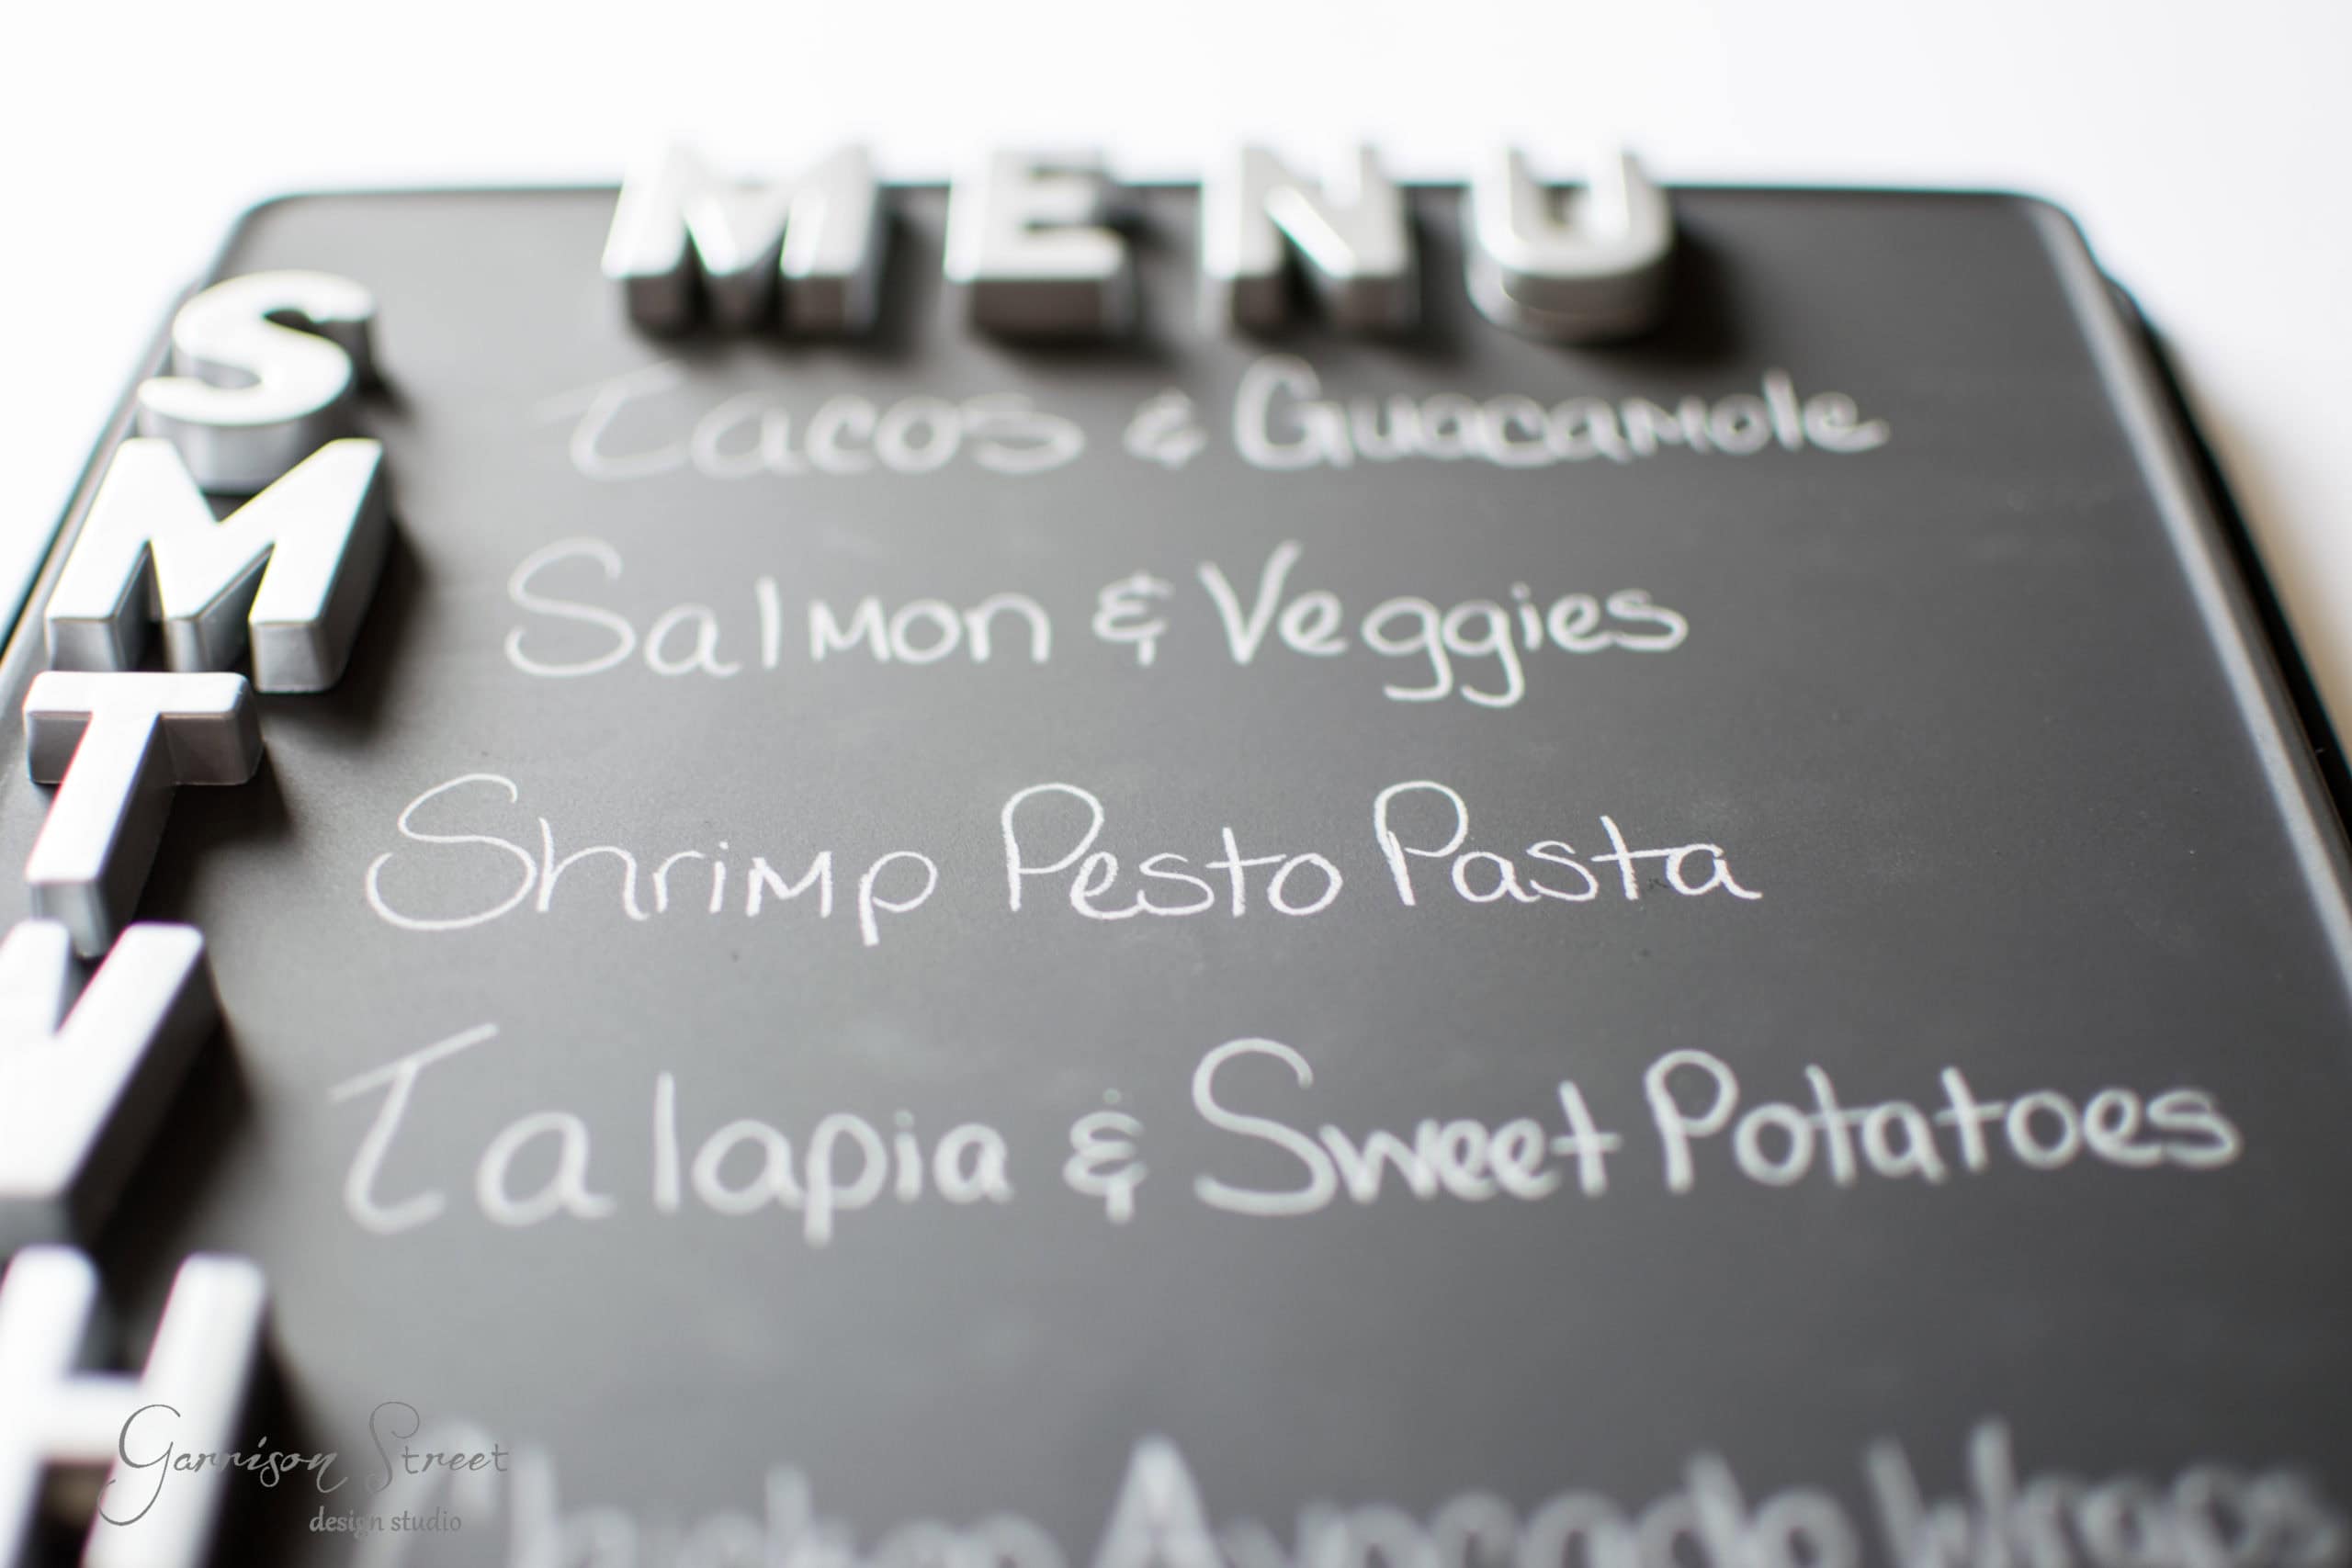 MENU
S Tacos & Guacamole
M Salmon & Veggies
T Shrimp Pesto Pasta
W Talapia & Sweet Potatoes
H Chicken Avocado Wraps
Garrison Street
design studio